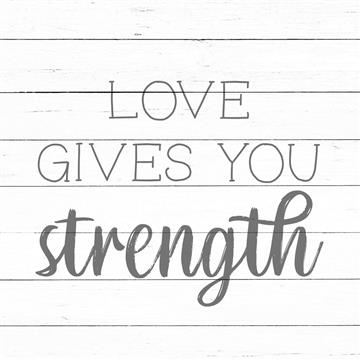 LOVE
GIVES YOU
strength